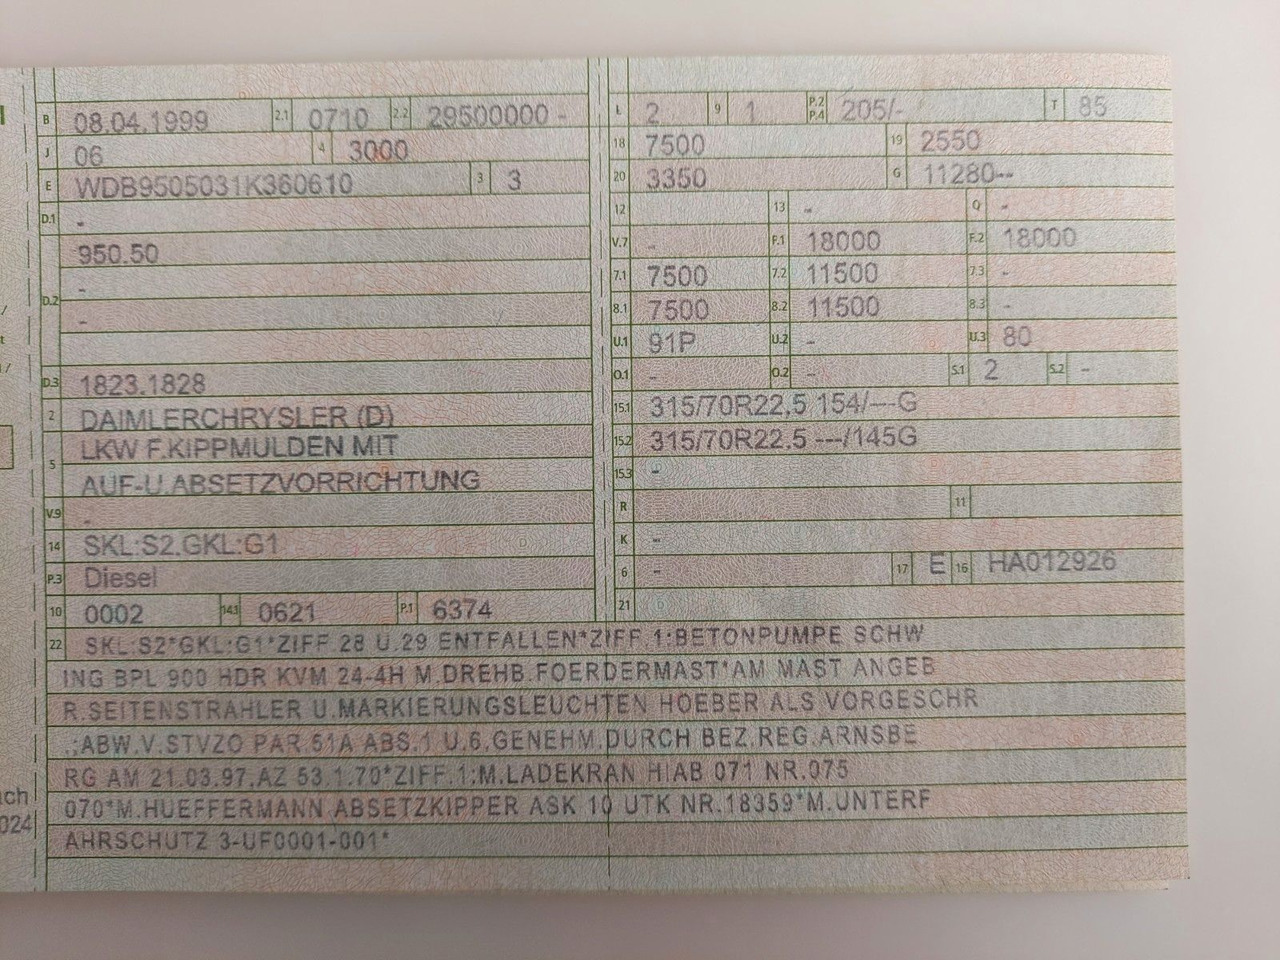 B 08.04.1999 2.1 0710 2.2 29500000 -
J 06 4 3000
E WDB9505031K360610 3 3
D.1 -
950.50
-
D.2 -
D.3 1823.1828
2 DAIMLERCHRYSLER (D)
LKW F.KIPPMULDEN MIT
5
AUF-U.ABSETZVORRICHTUNG
V.9 -
14 SKL:S2.GKL:G1
P.3 Diesel
10 0002 14.1 0621 P.1 6374
L 2 9 1 P.2 P.4 205/- T 85
18 7500 19 2550
20 3350 G 11280--
12 13 - Q -
V.7 - F.1 18000 F.2 18000
7.1 7500 7.2 11500 7.3 -
8.1 7500 8.2 11500 8.3 -
U.1 91P U.2 - U.3 80
O.1 - O.2 -- S.1 2 S.2 -
15.1 315/70R22,5 154/---G
15.2 315/70R22.5 ---/145G
15.3 -
R 11
K -
6 - 17 E 16 HA012926
21
22 SKL:S2*GKL:G1*ZIFF.28 U.29 ENTFALLEN*ZIFF.1:BETONPUMPE SCHW
ING BPL 900 HDR KVM 24-4H M.DREHB.FOERDERMAST*AM MAST ANGEB
R.SEITENSTRAHLER U.MARKIERUNGSLEUCHTEN HOEBER ALS VORGESCHR
.;ABW.V.STVZO PAR.51A ABS.1 U.6,GENEHM.DURCH BEZ.REG.ARNSBE
RG AM 21.03.97,AZ 53.1.70*ZIFF.1:M.LADEKRAN HIAB 071 NR.075
070*M.HUEFFERMANN ABSETZKIPPER ASK 10 UTK NR.18359*M.UNTERF
AHRSCHUTZ 3-UF0001-001*
ach
024